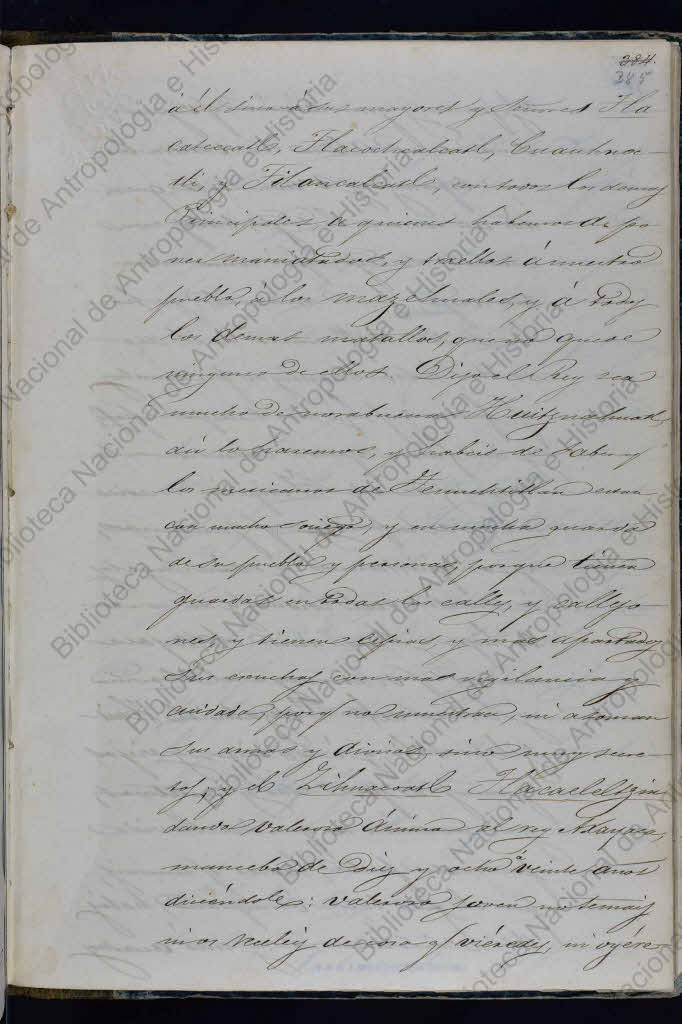 384.
385
á él sino á sus mayores y Señores Tla
catecatl, Tlacochcalcatl, Cuauhno-
tli, y Tilancalcatl, con todos los demas
Principales de quienes habemos de po
ner maniatados, y traellos á nuestro
pueblo, á los mazehuales, y á todos
los demas matallos, que no quede
ninguno de ellos. Dijo el Rey sea
mucho de norabuena Huitznahuatl,
así lo haremos, y habeis de saber q
los mexicanos de Tenuchtitlan estan
con mucho sosiego, y en mucha guarda
de su pueblo y personas, porque tienen
guardas en todas las calles, y callejo
nes, y tienen espias, y mas apartados
sus escuchas con mas vigilancia y
cuidado, porq no muestran, ni asoman
sus armas y divisas, sino muy secre
tos, y el Zihuacoatl Tlacaeleltzin
dando valerosa ánima al rey Axayaca,
mancebo de diez y ocho á veinte años
diciéndole: valeroso joven no temais
ni os receleis de cosa q viéredes, ni oyére
Biblioteca Nacional de Antropología e Historia